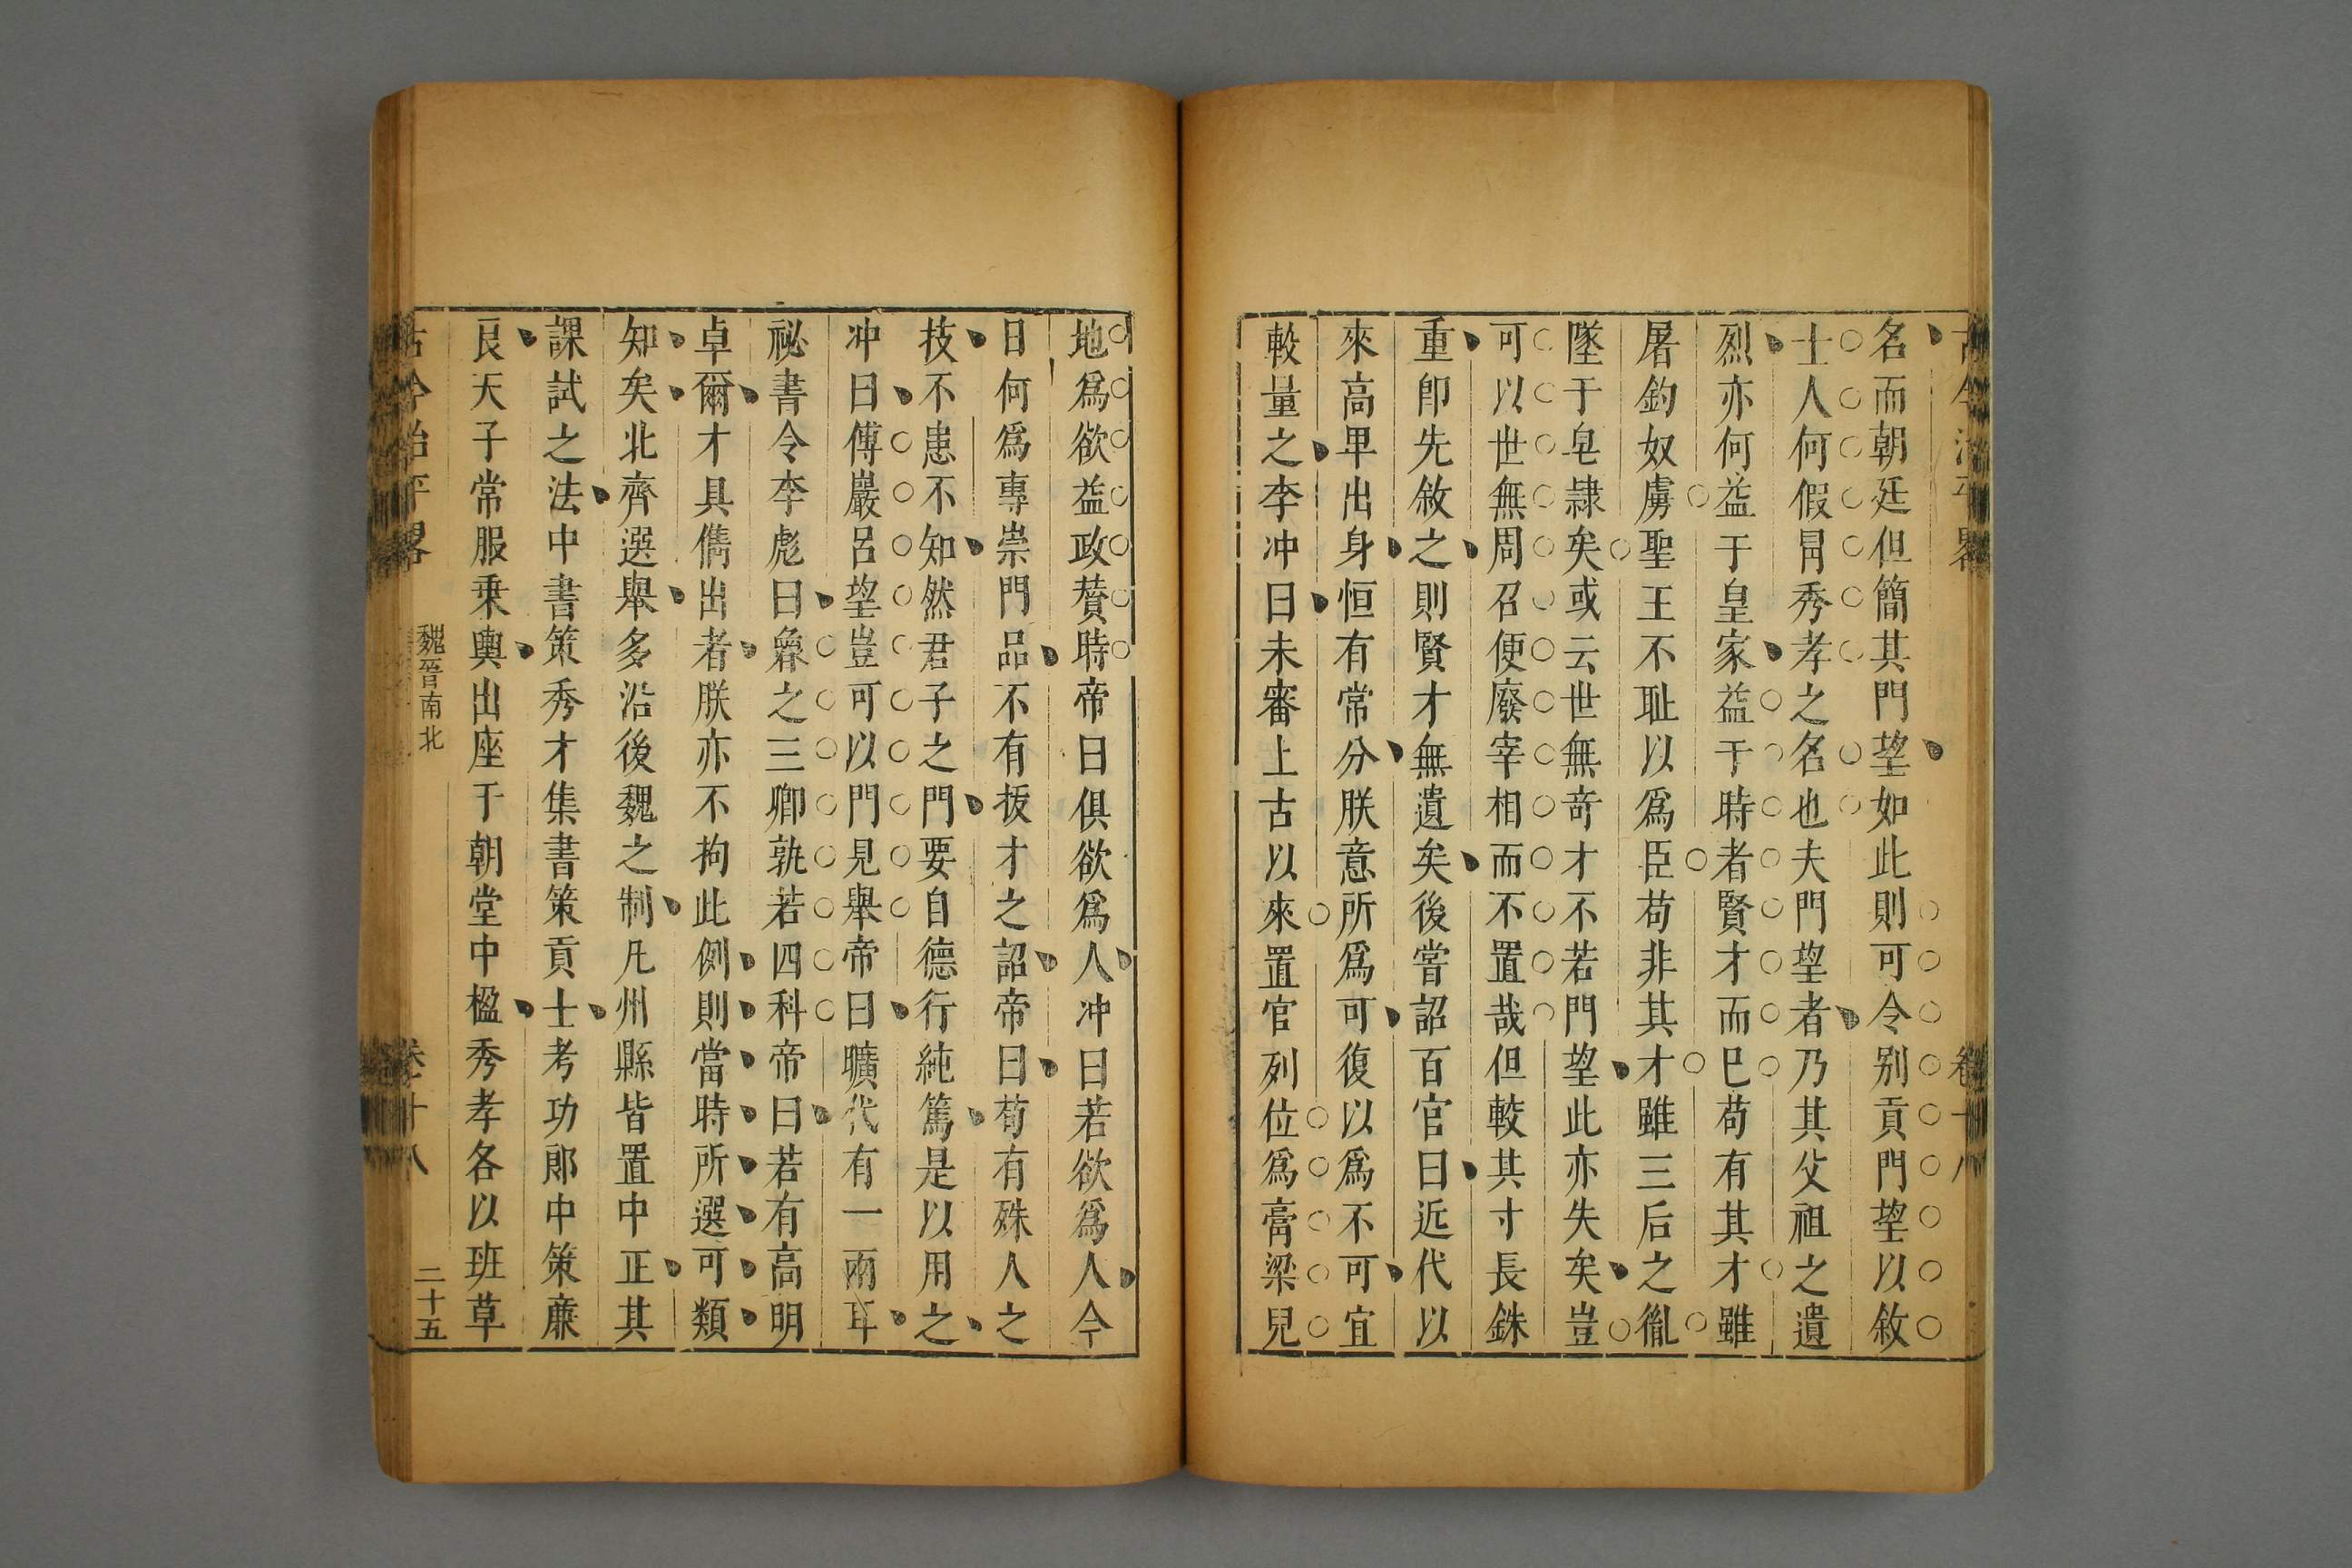 名而朝廷但簡其門望如此則可令别貢門望以敘
士人何假冐秀孝之名也夫門望者乃其父祖之遺
烈亦何益于皇家益于時者賢才而已苟有其才雖
屠釣奴虜聖王不耻以爲臣苟非其才雖三后之胤
墜于皂隷矣或云世無奇才不若門望此亦失矣豈
可以世無周召便廢宰相而不置哉但較其寸長銖
重卽先敘之則賢才無遺矣後嘗詔百官曰近代以
來高卑出身恒有常分朕意所爲可復以爲不可宜
較量之李冲曰未審上古以來置官列位爲膏梁兒
地爲欲益政賛時帝曰俱欲爲人冲曰若欲爲人今
日何爲專崇門品不有拔才之詔帝曰苟有殊人之
技不患不知然君子之門要自德行純篤是以用之
冲曰傅巖呂望豈可以門見舉帝曰曠代有一兩耳
祕書令李彪曰魯之三卿孰若四科帝曰若有高明
卓爾才具儁出者朕亦不拘此例則當時所選可類
知矣北齊選舉多沿後魏之制凡州縣皆置中正其
課試之法中書策秀才集書策貢士考功郎中策廉
良天子常服乗輿出座于朝堂中楹秀孝各以班草
古今治平畧
魏晉南北
卷十八
二十五